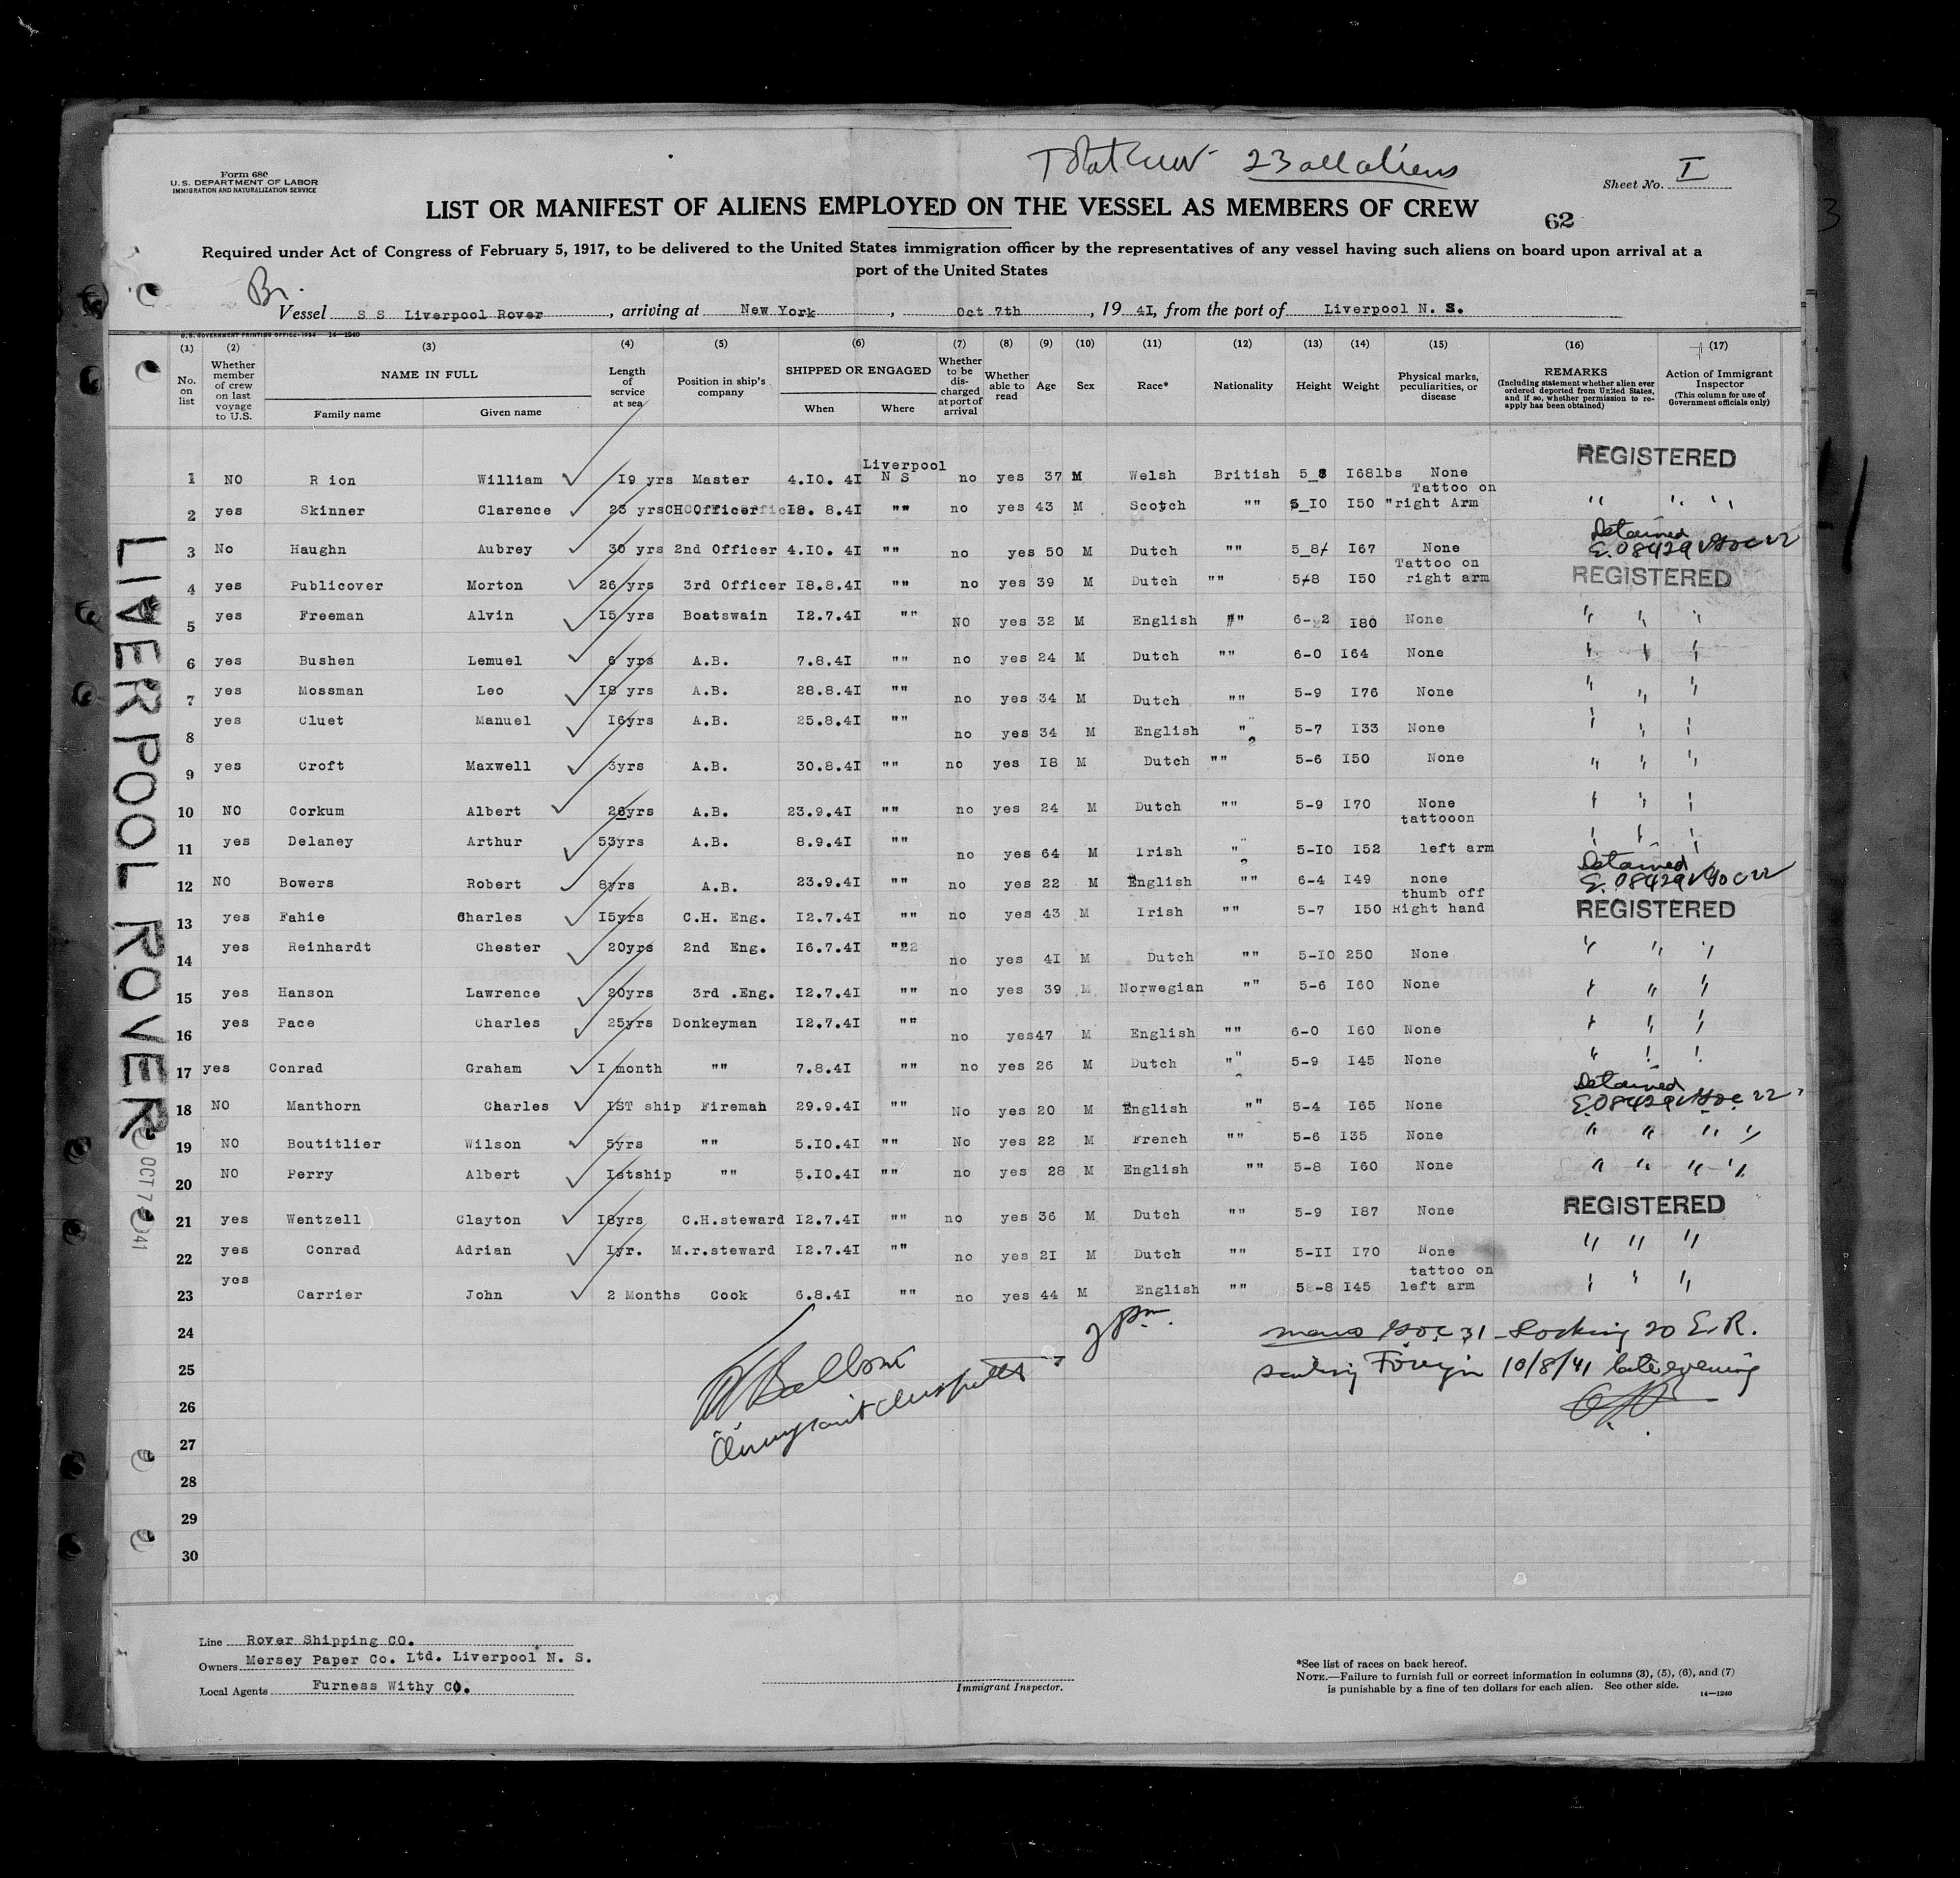 Total Crew 23 all aliens
Form 680
U. S. DEPARTMENT OF LABOR
IMMIGRATION AND NATURALIZATION SERVICE
Sheet No. I
LIST OR MANIFEST OF ALIENS EMPLOYED ON THE VESSEL AS MEMBERS OF CREW
62
Required under Act of Congress of February 5, 1917, to be delivered to the United States immigration officer by the representatives of any vessel having such aliens on board upon arrival at a
port of the United States
Br.
Vessel S S Liverpool Rover, arriving at New York, Oct 7th, 19 4I, from the port of Liverpool N. S.
U. S. GOVERNMENT PRINTING OFFICE: 1934 14—1240
(1) (2) (3) (4) (5) (6) (7) (8) (9) (10) (11) (12) (13) (14) (15) (16) (17)
No. on list
Whether member of crew on last voyage to U.S.
NAME IN FULL
Family name Given name
Length of service at sea
Position in ship's company
SHIPPED OR ENGAGED
When Where
Whether to be discharged at port of arrival
Whether able to read
Age
Sex
Race*
Nationality
Height
Weight
Physical marks, peculiarities, or disease
REMARKS
(Including statement whether alien ever ordered deported from United States, and if so, whether permission to re-apply has been obtained)
Action of Immigrant Inspector
(This column for use of Government officials only)
1 NO R ion William I9 yrs Master 4.I0. 4I Liverpool N S no yes 37 M Welsh British 5_8 I68lbs None REGISTERED
2 yes Skinner Clarence 23 yrs CHOfficer I8. 8.4I "" no yes 43 M Scotch "" 5_I0 I50 Tattoo on "right Arm " " "
3 No Haughn Aubrey 30 yrs 2nd Officer 4.I0. 4I "" no yes 50 M Dutch "" 5_8 I67 None Detained E.08429
4 yes Publicover Morton 26 yrs 3rd Officer I8.8.4I "" no yes 39 M Dutch "" 5-8 I50 Tattoo on right arm REGISTERED
5 yes Freeman Alvin I5 yrs Boatswain I2.7.4I "" NO yes 32 M English "" 6-2 I80 None " " "
6 yes Bushen Lemuel 6 yrs A.B. 7.8.4I "" no yes 24 M Dutch "" 6-0 I64 None " " "
7 yes Mossman Leo I8 yrs A.B. 28.8.4I "" no yes 34 M Dutch "" 5-9 I76 None " " "
8 yes Cluet Manuel I6yrs A.B. 25.8.4I "" no yes 34 M English " 5-7 I33 None " " "
9 yes Croft Maxwell 3yrs A.B. 30.8.4I "" no yes I8 M Dutch "" 5-6 I50 None " " "
10 NO Corkum Albert 26yrs A.B. 23.9.4I "" no yes 24 M Dutch "" 5-9 I70 None " " "
11 yes Delaney Arthur 53yrs A.B. 8.9.4I "" no yes 64 M Irish " 5-I0 I52 tattooon left arm " " "
12 NO Bowers Robert 8yrs A.B. 23.9.4I "" no yes 22 M English "" 6-4 I49 none Detained E.08429
13 yes Fahie Charles I5yrs C.H. Eng. I2.7.4I "" no yes 43 M Irish "" 5-7 I50 thumb off Right hand REGISTERED
14 yes Reinhardt Chester 20yrs 2nd Eng. I6.7.4I "" no yes 4I M Dutch "" 5-I0 250 None " " "
15 yes Hanson Lawrence 20yrs 3rd .Eng. I2.7.4I "" no yes 39 M Norwegian "" 5-6 I60 None " " "
16 yes Pace Charles 25yrs Donkeyman I2.7.4I "" no yes 47 M English "" 6-0 I60 None " " "
17 yes Conrad Graham I month "" 7.8.4I "" no yes 26 M Dutch "" 5-9 I45 None " " "
18 NO Manthorn Charles IST ship Fireman 29.9.4I "" No yes 20 M English "" 5-4 I65 None Detained E.08429
19 NO Boutitlier Wilson 5yrs "" 5.I0.4I "" No yes 22 M French "" 5-6 I35 None " " " "
20 NO Perry Albert Istship "" 5.I0.4I "" no yes 28 M English "" 5-8 I60 None " " " "
21 yes Wentzell Clayton I8yrs C.H.steward I2.7.4I "" no yes 36 M Dutch "" 5-9 I87 None REGISTERED
22 yes Conrad Adrian Iyr. M.r.steward I2.7.4I "" no yes 2I M Dutch "" 5-II I70 None " " "
23 yes Carrier John 2 Months Cook 6.8.4I "" no yes 44 M English "" 5-8 I45 tattoo on left arm " " "
24
25
26
27
28
29
30
2 pm.
Docking 20 E.R.
sailing Foreign 10/8/41 late evening
Immigrant Inspector
LIVERPOOL ROVER
OCT 7 41
Line Rover Shipping CO.
Owners Mersey Paper Co. Ltd. Liverpool N. S.
Local Agents Furness Withy CO.
Immigrant Inspector.
*See list of races on back hereof.
NOTE.—Failure to furnish full or correct information in columns (3), (5), (6), and (7)
is punishable by a fine of ten dollars for each alien. See other side.
14—1240